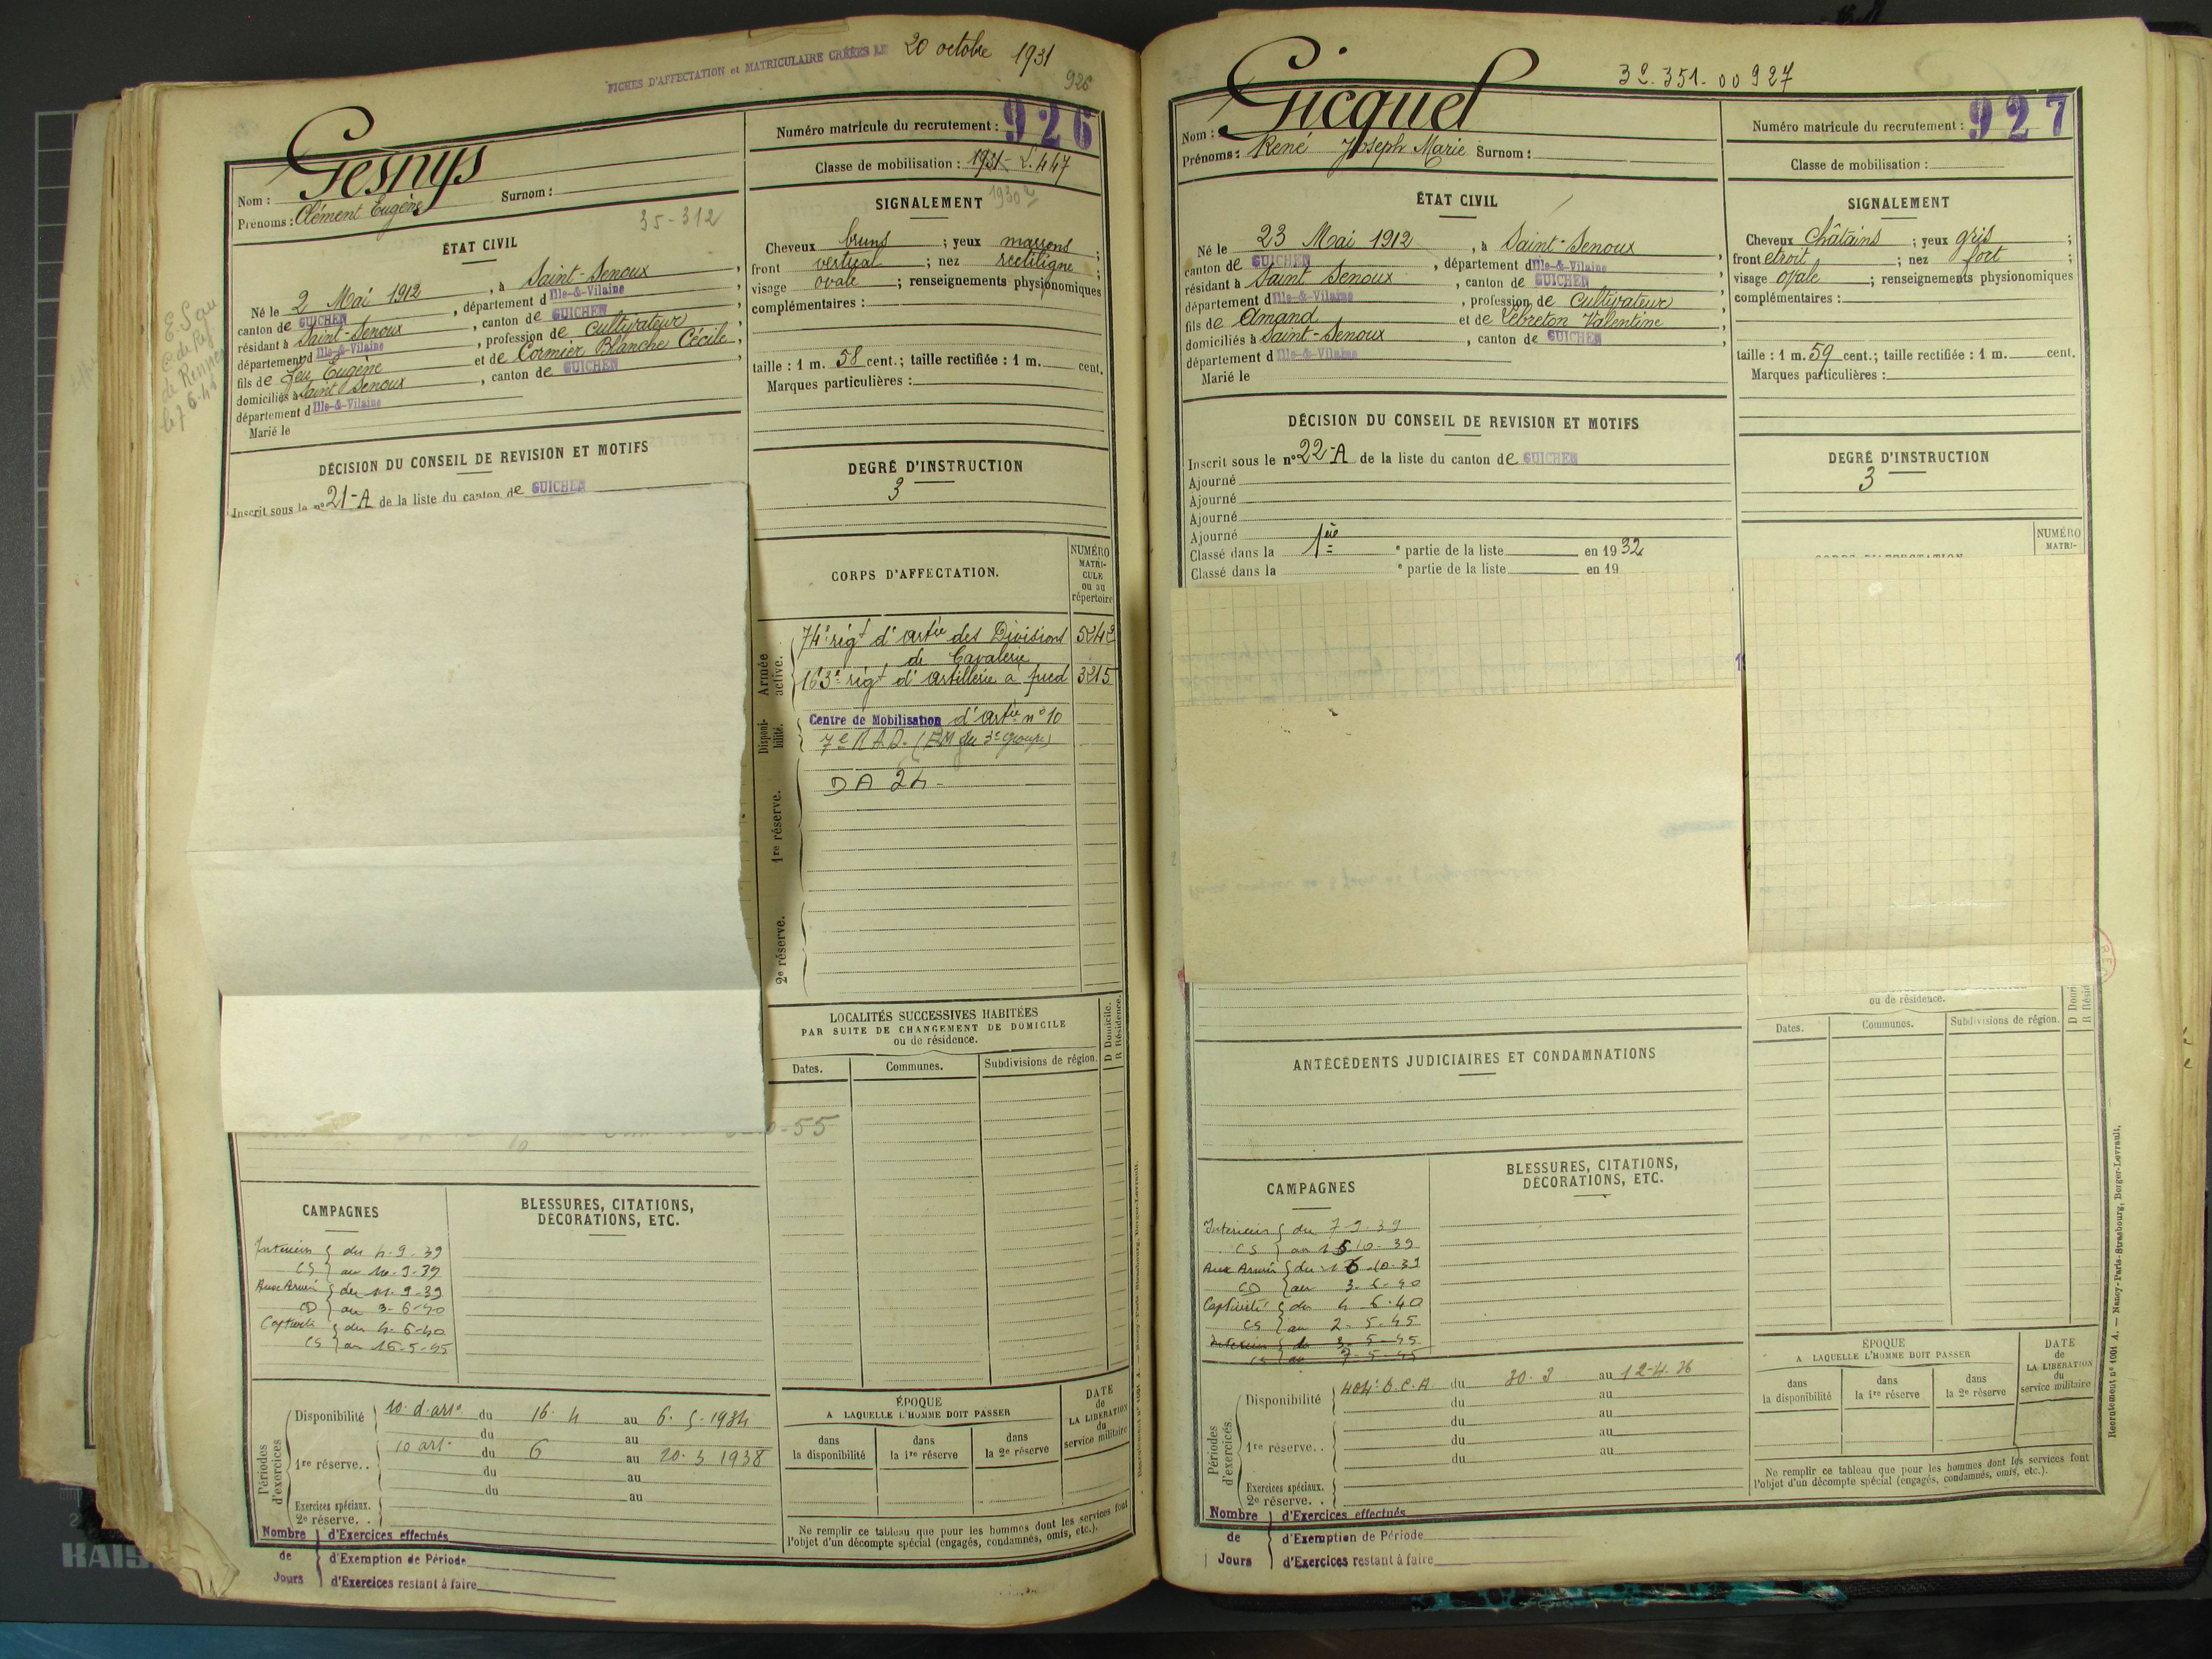 FICHES D'AFFECTATION et MATRICULAIRE CRÉÉES LE 20 octobre 1931
926
Nom : Gesnys
Prénoms : Clément Eugène Surnom :
35-312
Numéro matricule du recrutement : 926
Classe de mobilisation : 1931
ÉTAT CIVIL
Né le 2 Mai 1912, à Saint-Senoux,
canton de GUICHEN, département d Ille-&-Vilaine
résidant à Saint-Senoux, canton de GUICHEN
département d Ille-&-Vilaine, profession de Cultivateur,
fils de feu Eugène et de Cormier Blanche Cécile,
domiciliés à Saint Senoux, canton de GUICHEN,
département d Ille-&-Vilaine
Marié le
SIGNALEMENT
Cheveux bruns ; yeux marrons ;
front vertical ; nez rectiligne ;
visage ovale ; renseignements physionomiques
complémentaires :
taille : 1 m. 58 cent. ; taille rectifiée : 1 m. cent.
Marques particulières :
DÉCISION DU CONSEIL DE REVISION ET MOTIFS
Inscrit sous le n° 21-A de la liste du canton de GUICHEN
DEGRÉ D'INSTRUCTION
3
CORPS D'AFFECTATION.
NUMÉRO
MATRI-
CULE
ou au
répertoire
Armée active.
74e régt d'artie des Divisions 5242
de Cavalerie
163e régt d'artillerie à pied 3215
Disponi-
bilité.
Centre de Mobilisation d'artie n° 10
7e R.A.D. (EM du 3e groupe)
1re réserve.
DA 24-
2e réserve.
LOCALITÉS SUCCESSIVES HABITÉES
PAR SUITE DE CHANGEMENT DE DOMICILE
ou de résidence.
D Domicile.
R Résidence.
Dates. Communes. Subdivisions de région.
CAMPAGNES
BLESSURES, CITATIONS,
DÉCORATIONS, ETC.
Intérieur du 4-9-39
CS au 10-9-39
Aux Armées du 11-9-39
CD au 3-6-40
Captivité du 4-6-40
CS au 16-5-45
Périodes d'exercices
Disponibilité 10. d. art. du 16. 4 au 6. 5. 1934
du au
1re réserve. . 10 art. du 6 au 20. 3 1938
du au
du au
Exercices spéciaux.
2e réserve. .
ÉPOQUE
A LAQUELLE L'HOMME DOIT PASSER
dans la disponibilité
dans la 1re réserve
dans la 2e réserve
DATE
de
LA LIBÉRATION
du
service militaire
Ne remplir ce tableau que pour les hommes dont les services font
l'objet d'un décompte spécial (engagés, condamnés, omis, etc.).
Nombre d'Exercices effectués
de d'Exemption de Période
Jours d'Exercices restant à faire
32.351.00927
Nom : Gicquel
Prénoms : René Joseph Marie Surnom :
Numéro matricule du recrutement : 927
Classe de mobilisation :
ÉTAT CIVIL
Né le 23 Mai 1912, à Saint-Senoux
canton de GUICHEN, département d Ille-&-Vilaine
résidant à Saint Senoux, canton de GUICHEN,
département d Ille-&-Vilaine, profession de Cultivateur,
fils de Amand et de Lebreton Valentine,
domiciliés à Saint-Senoux, canton de GUICHEN,
département d Ille-&-Vilaine
Marié le
SIGNALEMENT
Cheveux châtains ; yeux gris ;
front étroit ; nez fort ;
visage ovale ; renseignements physionomiques
complémentaires :
taille : 1 m. 59 cent. ; taille rectifiée : 1 m. cent.
Marques particulières :
DÉCISION DU CONSEIL DE REVISION ET MOTIFS
Inscrit sous le n° 22-A de la liste du canton de GUICHEN
Ajourné
Ajourné
Ajourné
Ajourné
Classé dans la 1ère e partie de la liste en 1932
Classé dans la e partie de la liste en 19
DEGRÉ D'INSTRUCTION
3
NUMÉRO
MATRI-
ou de résidence.
Dates. Communes. Subdivisions de région.
ANTÉCÉDENTS JUDICIAIRES ET CONDAMNATIONS
CAMPAGNES
BLESSURES, CITATIONS,
DÉCORATIONS, ETC.
Intérieur du 7-9-39
CS au 15-10-39
Aux Armées du 16-10-39
CD au 3-6-40
Captivité du 4-6-40
CS au 2-5-45
Intérieur du 3-5-45
CS au 7-5-45
Périodes d'exercices
Disponibilité 404e D.C.A. du 30. 3 au 12-4. 36
du au
du au
1re réserve. . du au
du au
Exercices spéciaux.
2e réserve. .
ÉPOQUE
A LAQUELLE L'HOMME DOIT PASSER
dans la disponibilité
dans la 1re réserve
dans la 2e réserve
DATE
de
LA LIBÉRATION
du
service militaire
Ne remplir ce tableau que pour les hommes dont les services font
l'objet d'un décompte spécial (engagés, condamnés, omis, etc.).
Nombre d'Exercices effectués
de d'Exemption de Période
Jours d'Exercices restant à faire
Recrutement n° 1001 A. — Nancy-Paris-Strasbourg, Berger-Levrault.